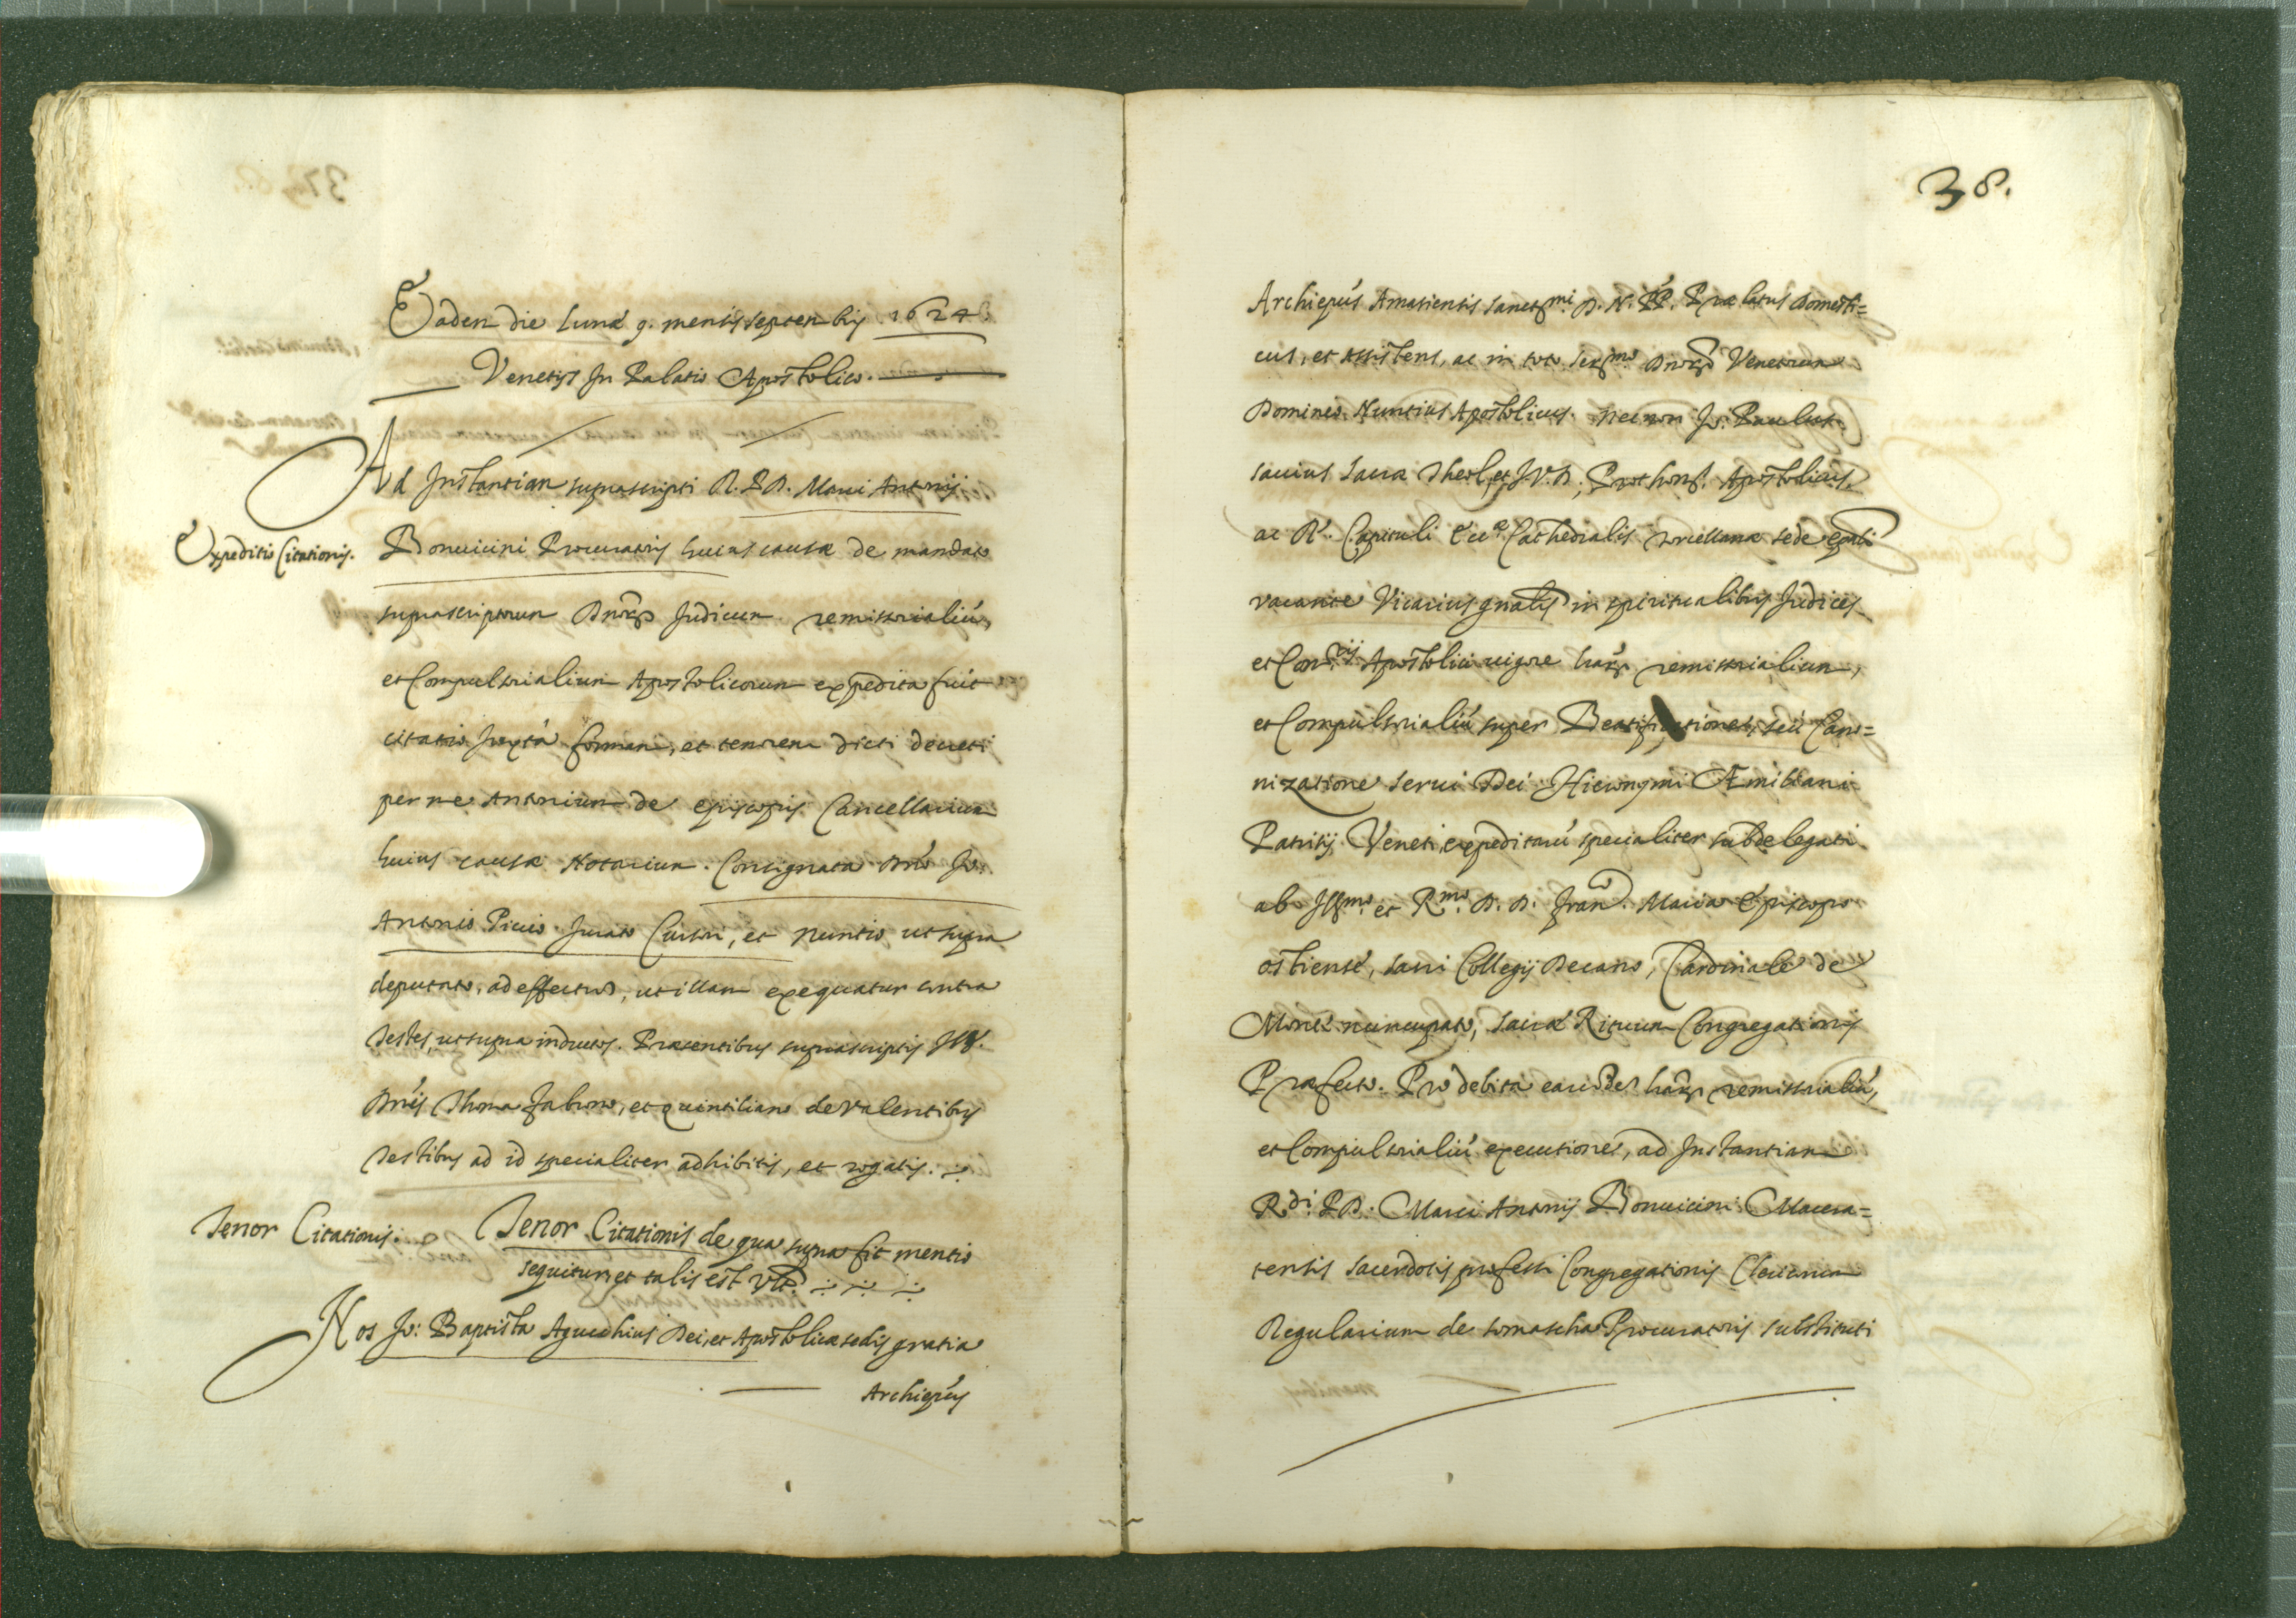 Eadem die lunæ 9. mensis septembris 1624
Venetijs In Palatio Apostolico.
Ad Instantiam suprascripti R. P. D. Marci Antonij
Expeditio Citationis.
Bonuicini Procuratoris huius causæ de mandato
suprascriptorum Dnorũ Judicum remissorialiũ,
et Compulsorialium Apostolicorum expedita fuit
citatio Juxtà formam, et tenorem dicti decreti
per me Antonium de episcopis Cancellarium
huius causæ Notarium. Consignata Dnõ Jo:
Antonio Picio Jurato Cursori, et nuntio ut supra
deputato, ad effectum, ut illam exequatur contra
Testes, ut supra inductos. Præsentibus suprascriptis Ill.
Dnis Thoma Fabrono, et Quintiliano de Valentibus
Testibus ad id specialiter adhibitis, et rogatis.
Tenor Citationis.
Tenor Citationis de qua supra fit mentio
sequitur, et talis est vlt.
Nos Jo: Baptista Agucchius Dei, et Apostolicæ sedis gratia
Archiepũs
38.
Archiepũs Amasiensis sanctmi. D. N. PP. Prælatus domesti=
cus, et Assistens, ac in toto Sermo. Dnorũ Venetorum
Dominio Nuntius Apostolicus. necnon Jo: Paulus
sauius Sacræ Theol. et J. V. D. Prothonr. Apostolicus,
ac R. Capituli Eccæ Cathedralis Torcellanæ sede epali
vacante Vicarius gnalis in spiritualibus Judices
et Comrij Apostolici uigore harũ remissorialium,
et Compulsorialiũ super Beatificatione, seù Cano=
nizatione serui Dei Hieronymi Æmiliani
Patritij Veneti, expeditarũ specialiter subdelegati
ab Illmo. et Rmo. D. D. Franco. Maria Episcopo
ostiense, sacri Collegij Decano, Cardinale de
Monte nuncupato, Sacræ Rituum Congregationis
Præfecto. Pro debita earũdem harũ remissorialiũ,
et Compulsorialiũ executione, ad Instantiam
Rdi. P. D. Marci Antonij Bonuicini Macera=
tensis sacerdotis professi Congregationis Clericorum
Regularium de somascha Procuratoris substituti